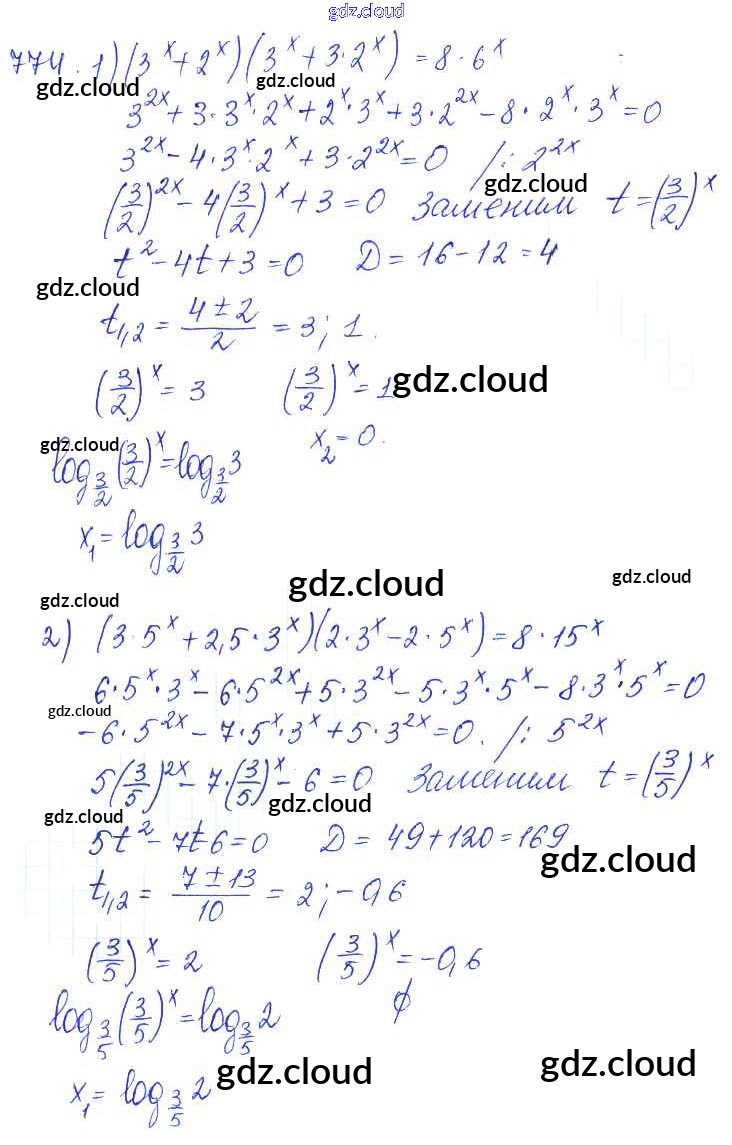 gdz.cloud
774. 1) (3^x + 2^x)(3^x + 3·2^x) = 8·6^x
gdz.cloud gdz.cloud
3^{2x} + 3·3^x·2^x + 2^x·3^x + 3·2^{2x} - 8·2^x·3^x = 0
3^{2x} - 4·3^x·2^x + 3·2^{2x} = 0 /: 2^{2x}
gdz.cloud
(3/2)^{2x} - 4(3/2)^x + 3 = 0 Заменим t = (3/2)^x
t^2 - 4t + 3 = 0 D = 16 - 12 = 4
gdz.cloud
t_{1,2} = (4 ± 2)/2 = 3; 1.
(3/2)^x = 3 (3/2)^x = 1
gdz.cloud
x_2 = 0.
gdz.cloud
log_{3/2} (3/2)^x = log_{3/2} 3
x_1 = log_{3/2} 3
gdz.cloud gdz.cloud
gdz.cloud
2) (3·5^x + 2,5·3^x)(2·3^x - 2·5^x) = 8·15^x
6·5^x·3^x - 6·5^{2x} + 5·3^{2x} - 5·3^x·5^x - 8·3^x·5^x = 0
gdz.cloud
-6·5^{2x} - 7·5^x·3^x + 5·3^{2x} = 0. /: 5^{2x}
5(3/5)^{2x} - 7·(3/5)^x - 6 = 0 Заменим t = (3/5)^x
gdz.cloud gdz.cloud
5t^2 - 7t - 6 = 0 D = 49 + 120 = 169
gdz.cloud
t_{1,2} = (7 ± 13)/10 = 2; -0,6
(3/5)^x = 2 (3/5)^x = -0,6
∅
log_{3/5} (3/5)^x = log_{3/5} 2
gdz.cloud gdz.cloud
x_1 = log_{3/5} 2